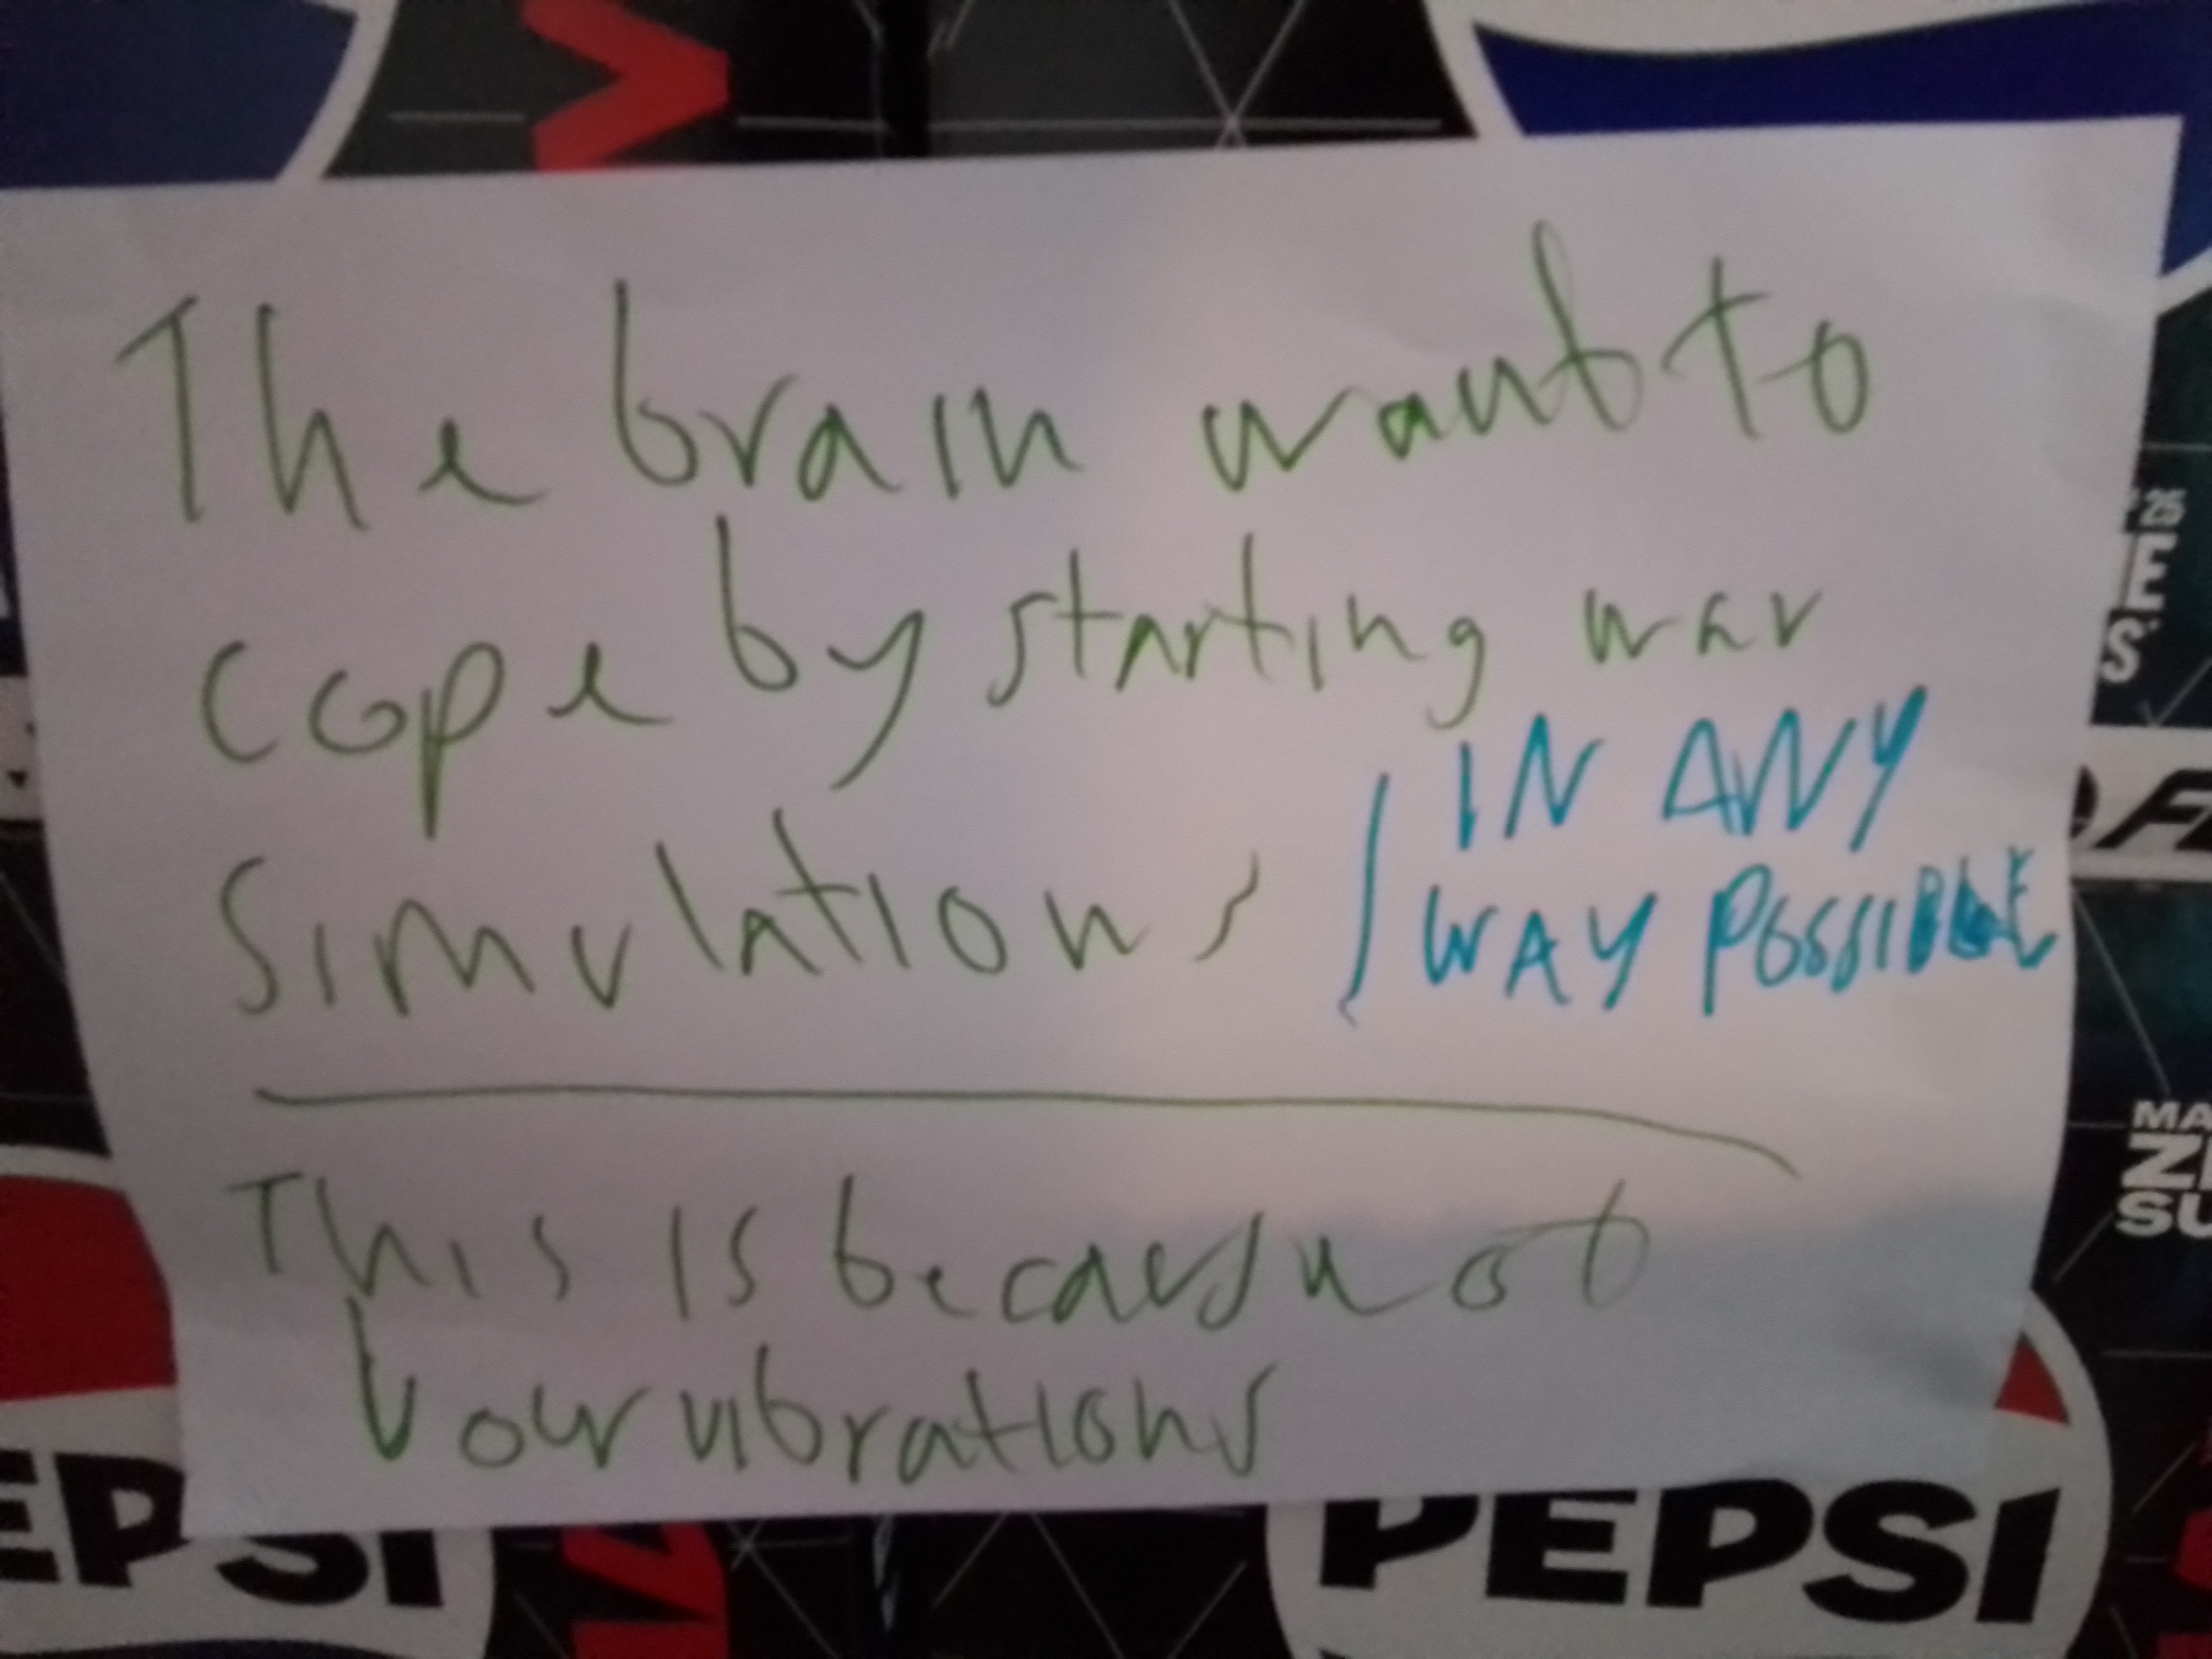 The brain want to
cope by starting war
simulations
IN ANY
WAY POSSIBLE
This is because of
low vibrations
'25
E
S
F
MA
ZE
SU
EPSI
PEPSI